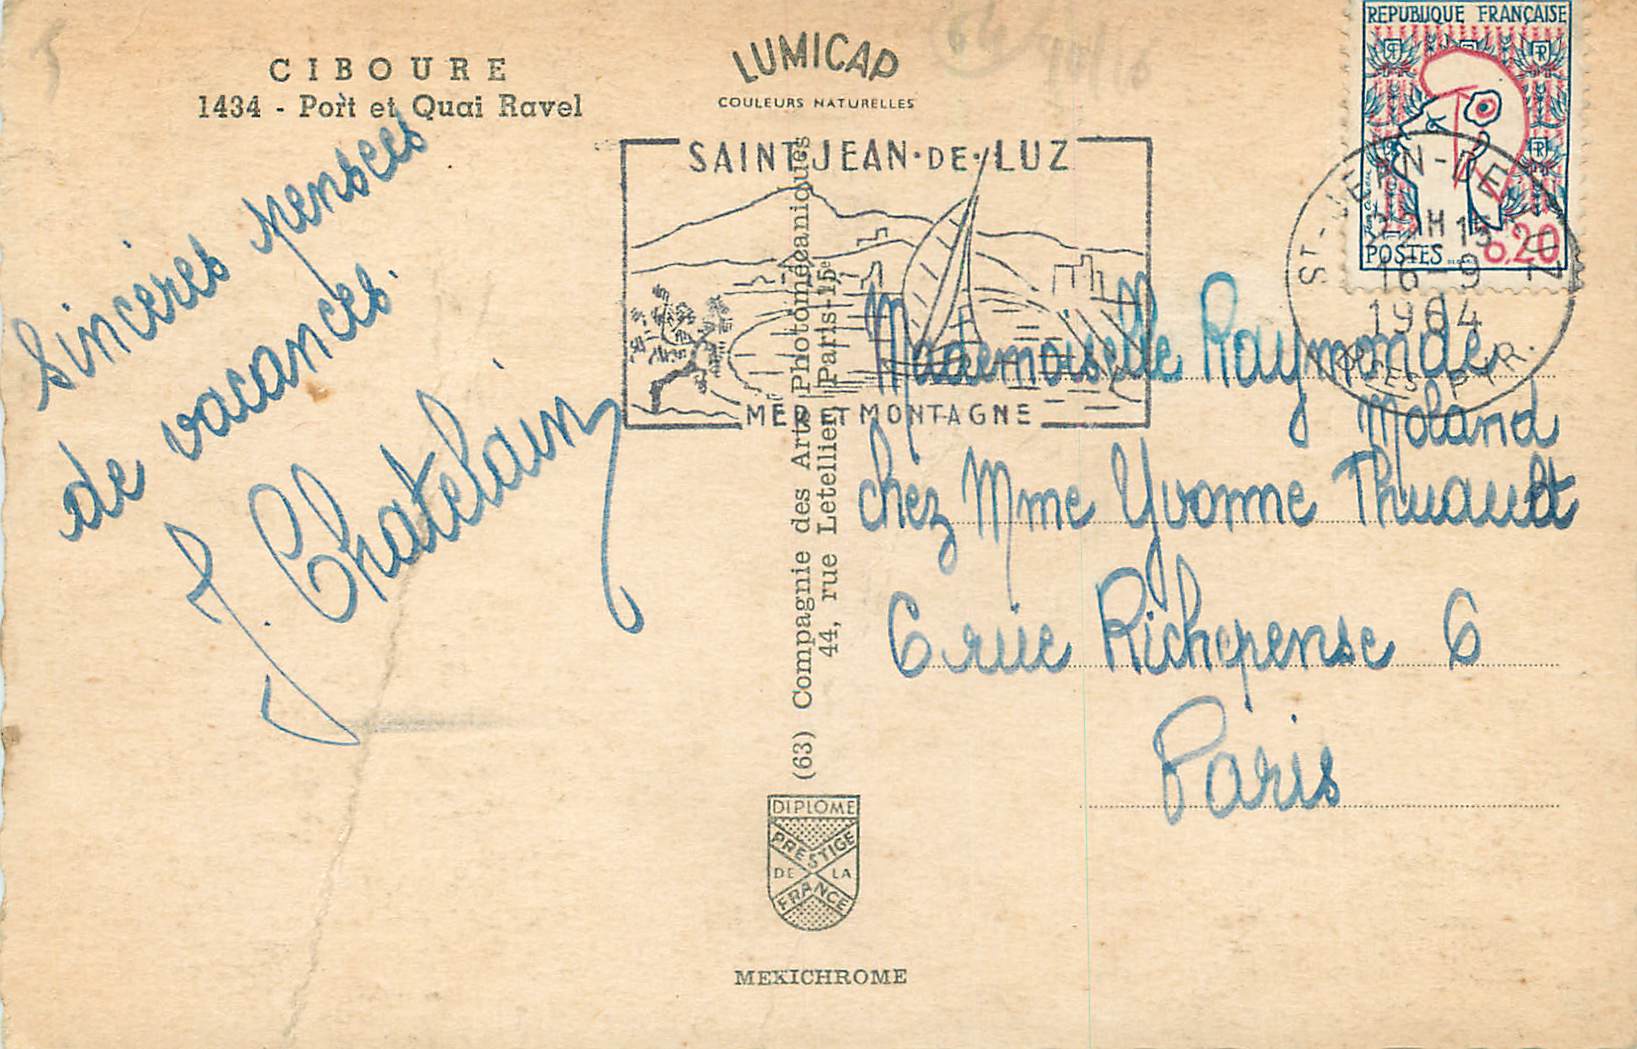 CIBOURE
1434 - Port et Quai Ravel
LUMICAP
COULEURS NATURELLES
Sincères pensées
de vacances.
J. Chatelain
SAINT JEAN·DE·LUZ
MER ET MONTAGNE
REPUBLIQUE FRANÇAISE
POSTES
0,20
ST-JEAN-DE-LUZ
H 15
16-9
1964
Mademoiselle Raymonde
Moland
chez Mme Yvonne Thuault
6 rue Richepense 6
Paris
(63) Compagnie des Arts Photomécaniques
44, rue Letellier, Paris-15e
DIPLOME
PRESTIGE
DE LA
FRANCE
MEXICHROME